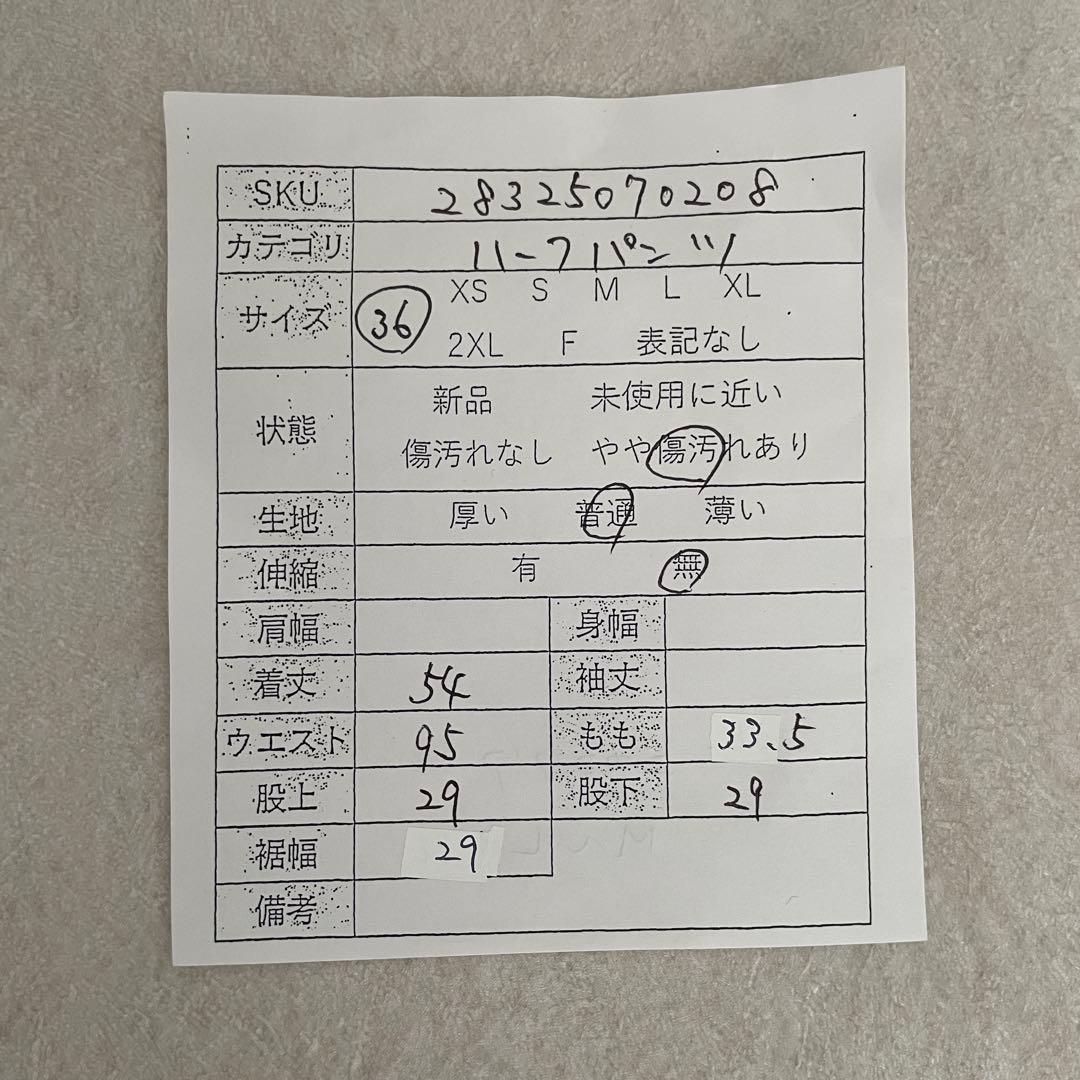 SKU 28325070208
カテゴリ ハーフパンツ
サイズ 36 XS S M L XL
2XL F 表記なし
状態 新品 未使用に近い
傷汚れなし やや傷汚れあり
生地 厚い 普通 薄い
伸縮 有 無
肩幅 身幅
着丈 54 袖丈
ウエスト 95 もも 33.5
股上 29 股下 29
裾幅 29
備考